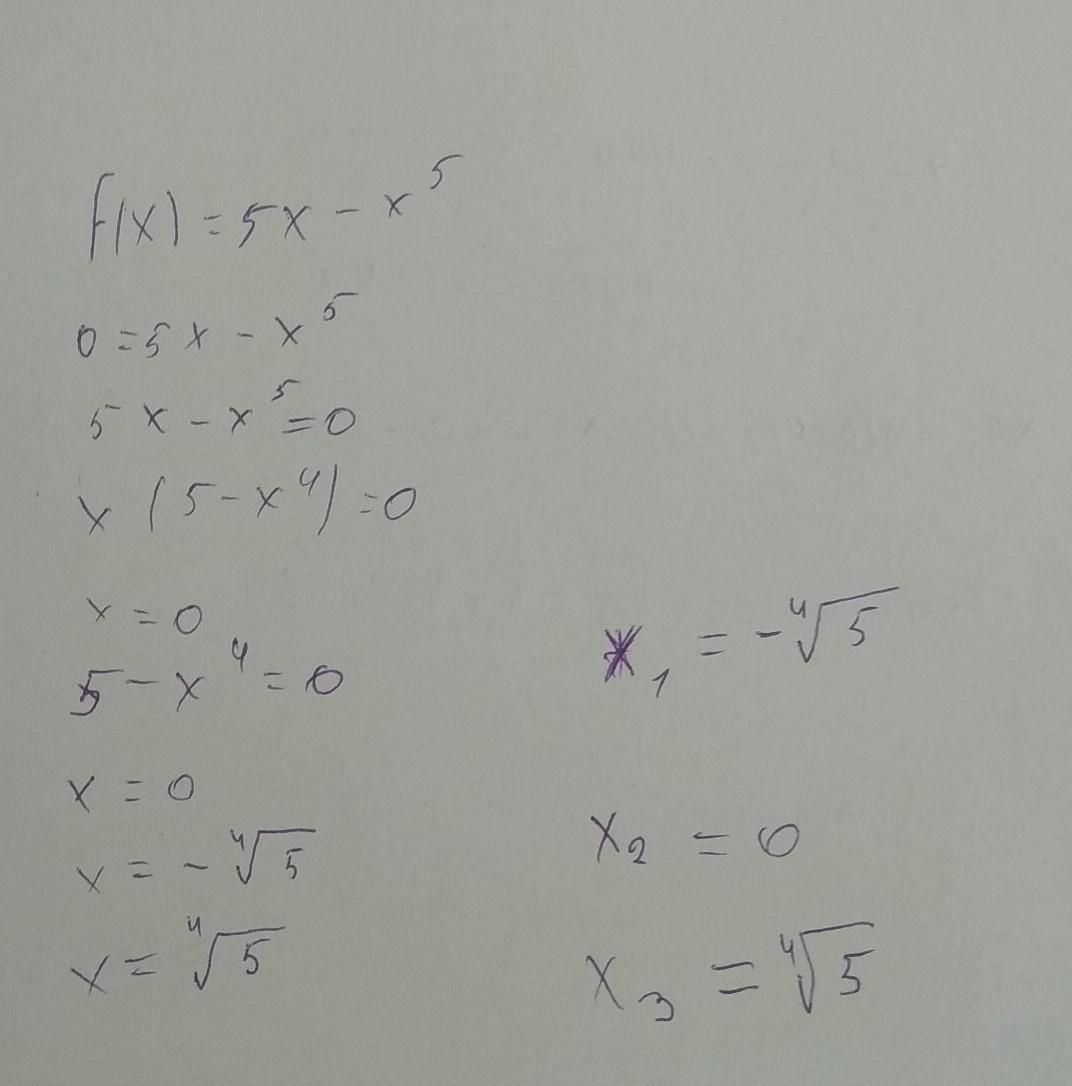 f(x) = 5x - x⁵
0 = 5x - x⁵
5x - x⁵ = 0
x (5 - x⁴) = 0
x = 0
5 - x⁴ = 0
x = 0
x = - ⁴√5
x = ⁴√5
x₁ = - ⁴√5
x₂ = 0
x₃ = ⁴√5